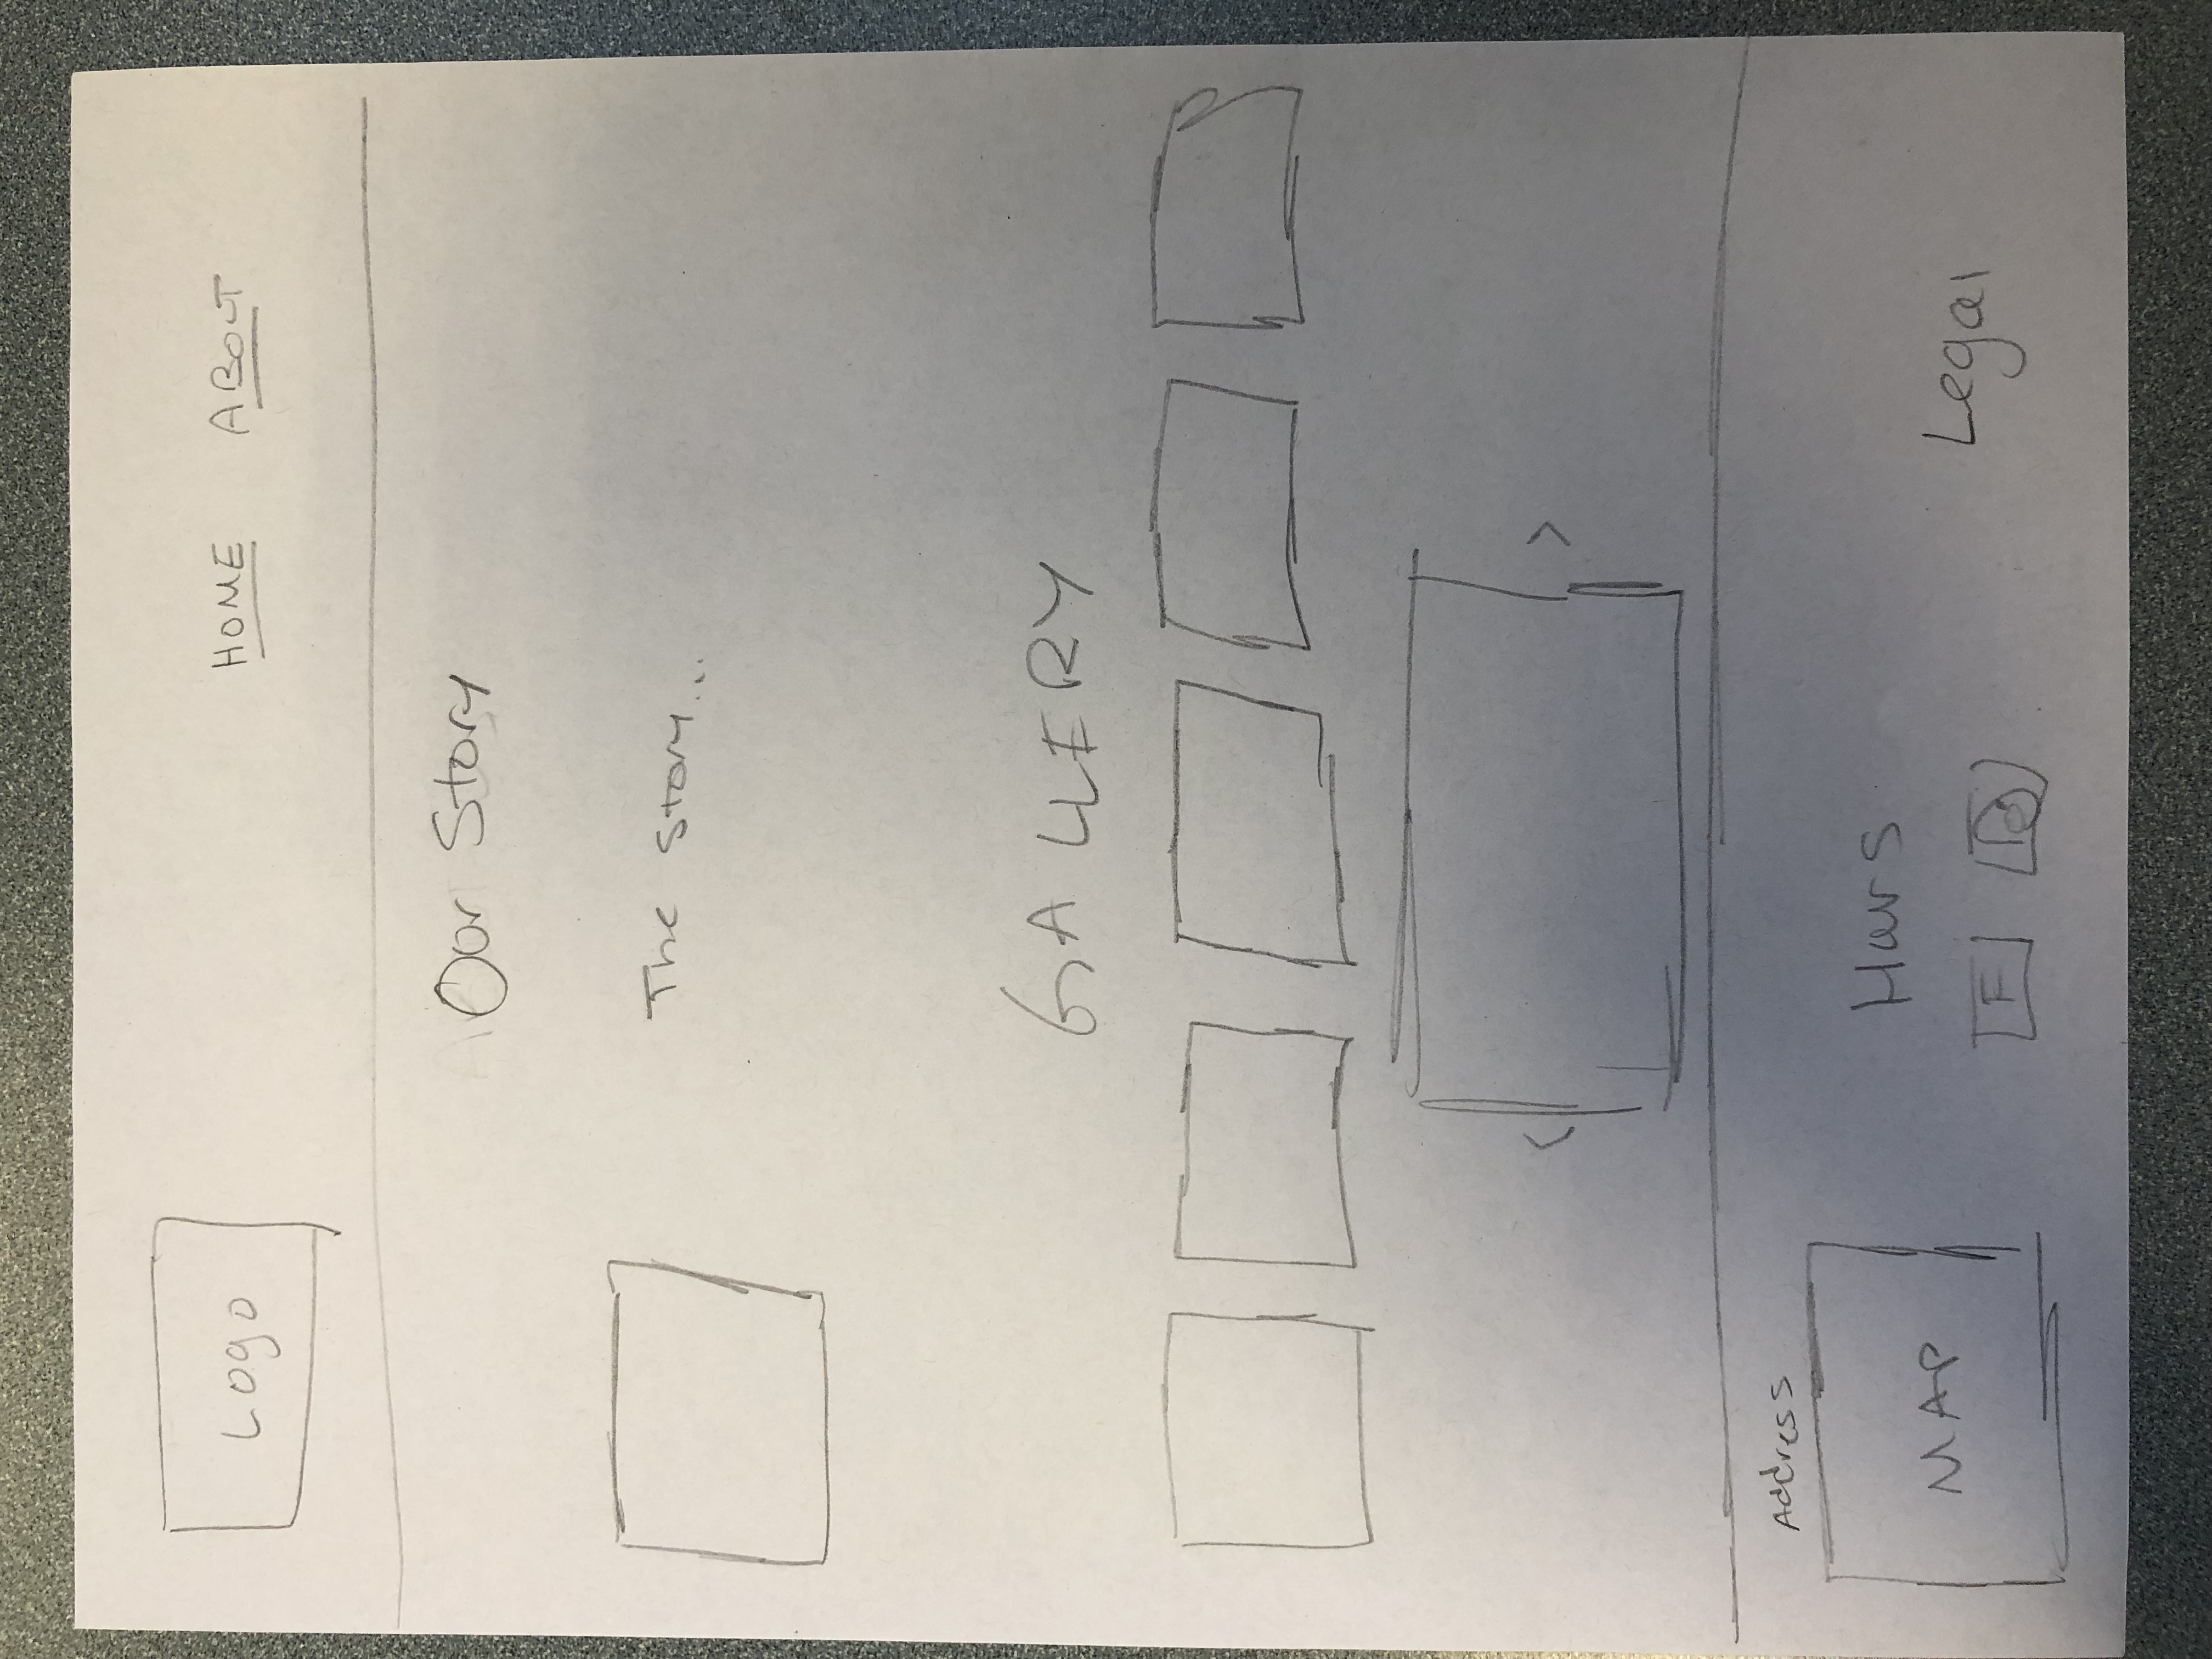 Logo
HOME ABOUT
Our Story
The story...
GALLERY
< >
Address
MAP
Hours
F
Legal